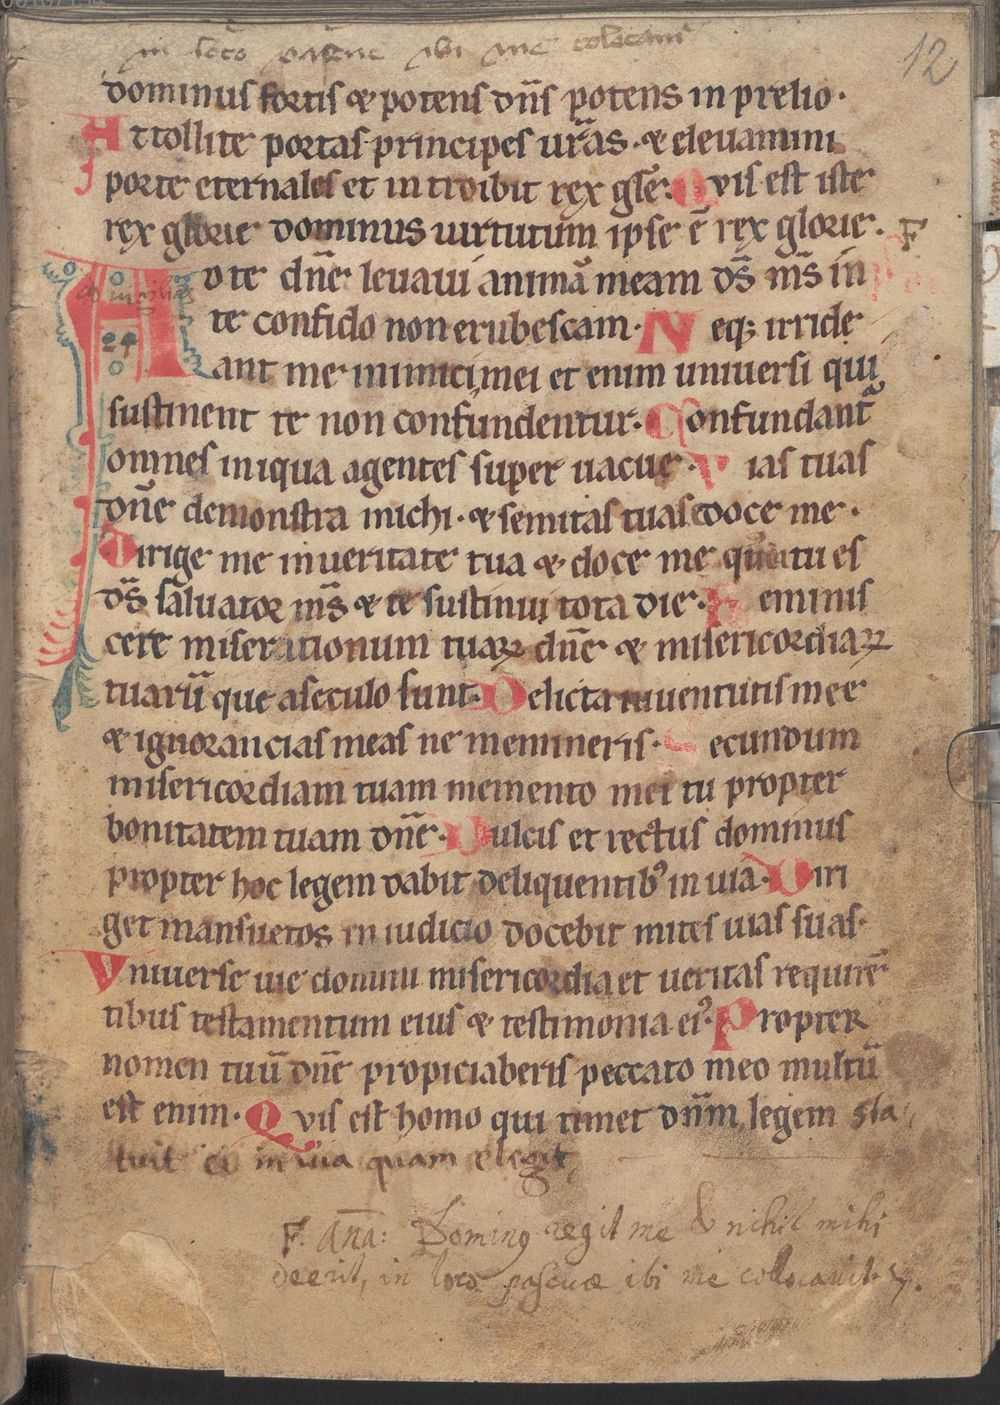 in loco pascue ibi me colocauit
12
dominus fortis & potens dn̄s potens in prelio·
Attollite portas principes ur̄as· & eleuamini
porte eternales et introibit rex gl̄e· Qvis est iste
rex glorie dominus uirtutum ipse ē rex glorie· F
A
24
o te dn̄e leuaui animā meam ds̄ ms̄ in
te confido non erubescam· Neq; irride
ant me inimici mei et enim uniuersi qui
sustinent te non confundentur· Confundant᷑
omnes iniqua agentes super uacue· Vias tuas
dn̄e demonstra michi· & semitas tuas edoce me·
Dirige me in ueritate tua & doce me quia tu es
ds̄ saluator ms̄ & te sustinui tota die· Reminis
cere miserationum tuaꝝ dn̄e & misericordiaꝝ
tuarū que a seculo sunt· Delicta iuuentutis mee
& ignorancias meas ne memineris· Secundum
misericordiam tuam memento mei tu propter
bonitatem tuam dn̄e· Dulcis et rectus dominus
propter hoc legem dabit deliquentibꝰ in uia· Diri
get mansuetos in iudicio docebit mites uias suas·
Vniuerse uie domini misericordia et ueritas requirē
tibus testamentum eius & testimonia eiꝰ· Propter
nomen tuū dn̄e propiciaberis peccato meo multū
est enim· Qvis est homo qui timet dn̄m legem sta
tuit ei in uia quam elegit
F. Anā: Dominꝰ regit me & nihil mihi
deerit, in loco pascuæ ibi me collocauit.